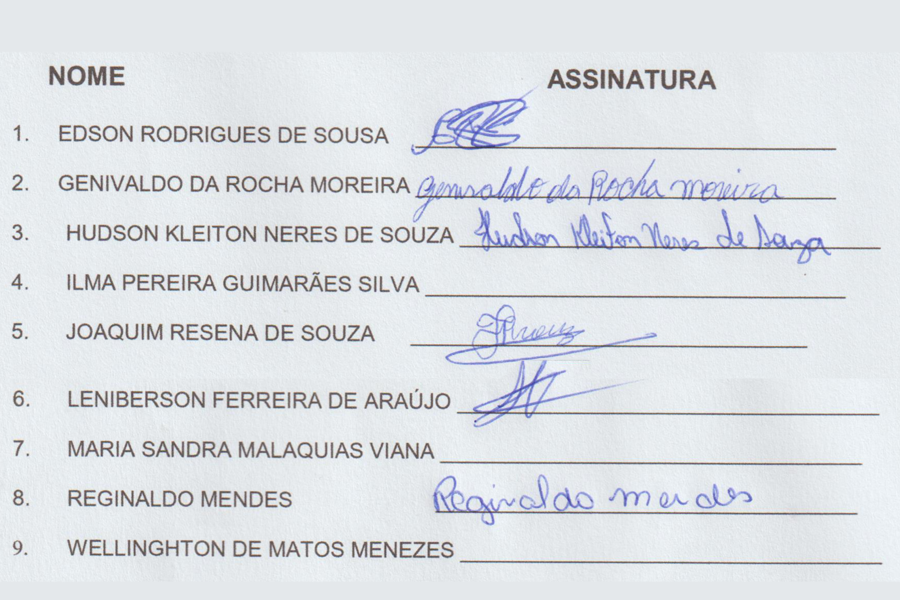 NOME ASSINATURA
1. EDSON RODRIGUES DE SOUSA
2. GENIVALDO DA ROCHA MOREIRA Genivaldo da Rocha moreira
3. HUDSON KLEITON NERES DE SOUZA Hudson Kleiton Neres de Souza
4. ILMA PEREIRA GUIMARÃES SILVA
5. JOAQUIM RESENA DE SOUZA
6. LENIBERSON FERREIRA DE ARAÚJO
7. MARIA SANDRA MALAQUIAS VIANA
8. REGINALDO MENDES Reginaldo mendes
9. WELLINGHTON DE MATOS MENEZES